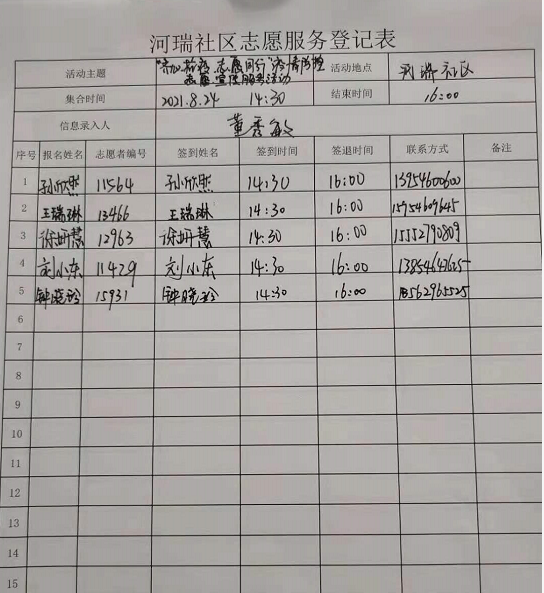 河瑞社区志愿服务登记表
活动主题 志愿同行"疫情防控 活动地点 河瑞社区
志愿宣传服务活动
集合时间 2021.8.24 14:30 结束时间 16:00
信息录入人 董秀敏
序号 报名姓名 志愿者编号 签到姓名 签到时间 签退时间 联系方式 备注
1 孙欣熙 11564 孙欣熙 14:30 16:00 13954600600
2 王瑞琳 13466 王瑞琳 14:30 16:00 15954609645
3 徐妍慧 12963 徐妍慧 14:30 16:00 15552790809
4 刘小东 11429 刘小东 14:30 16:00
5 钟晓玲 15931 钟晓玲 14:30 16:00 18562965525
6
7
8
9
10
11
12
13
14
15